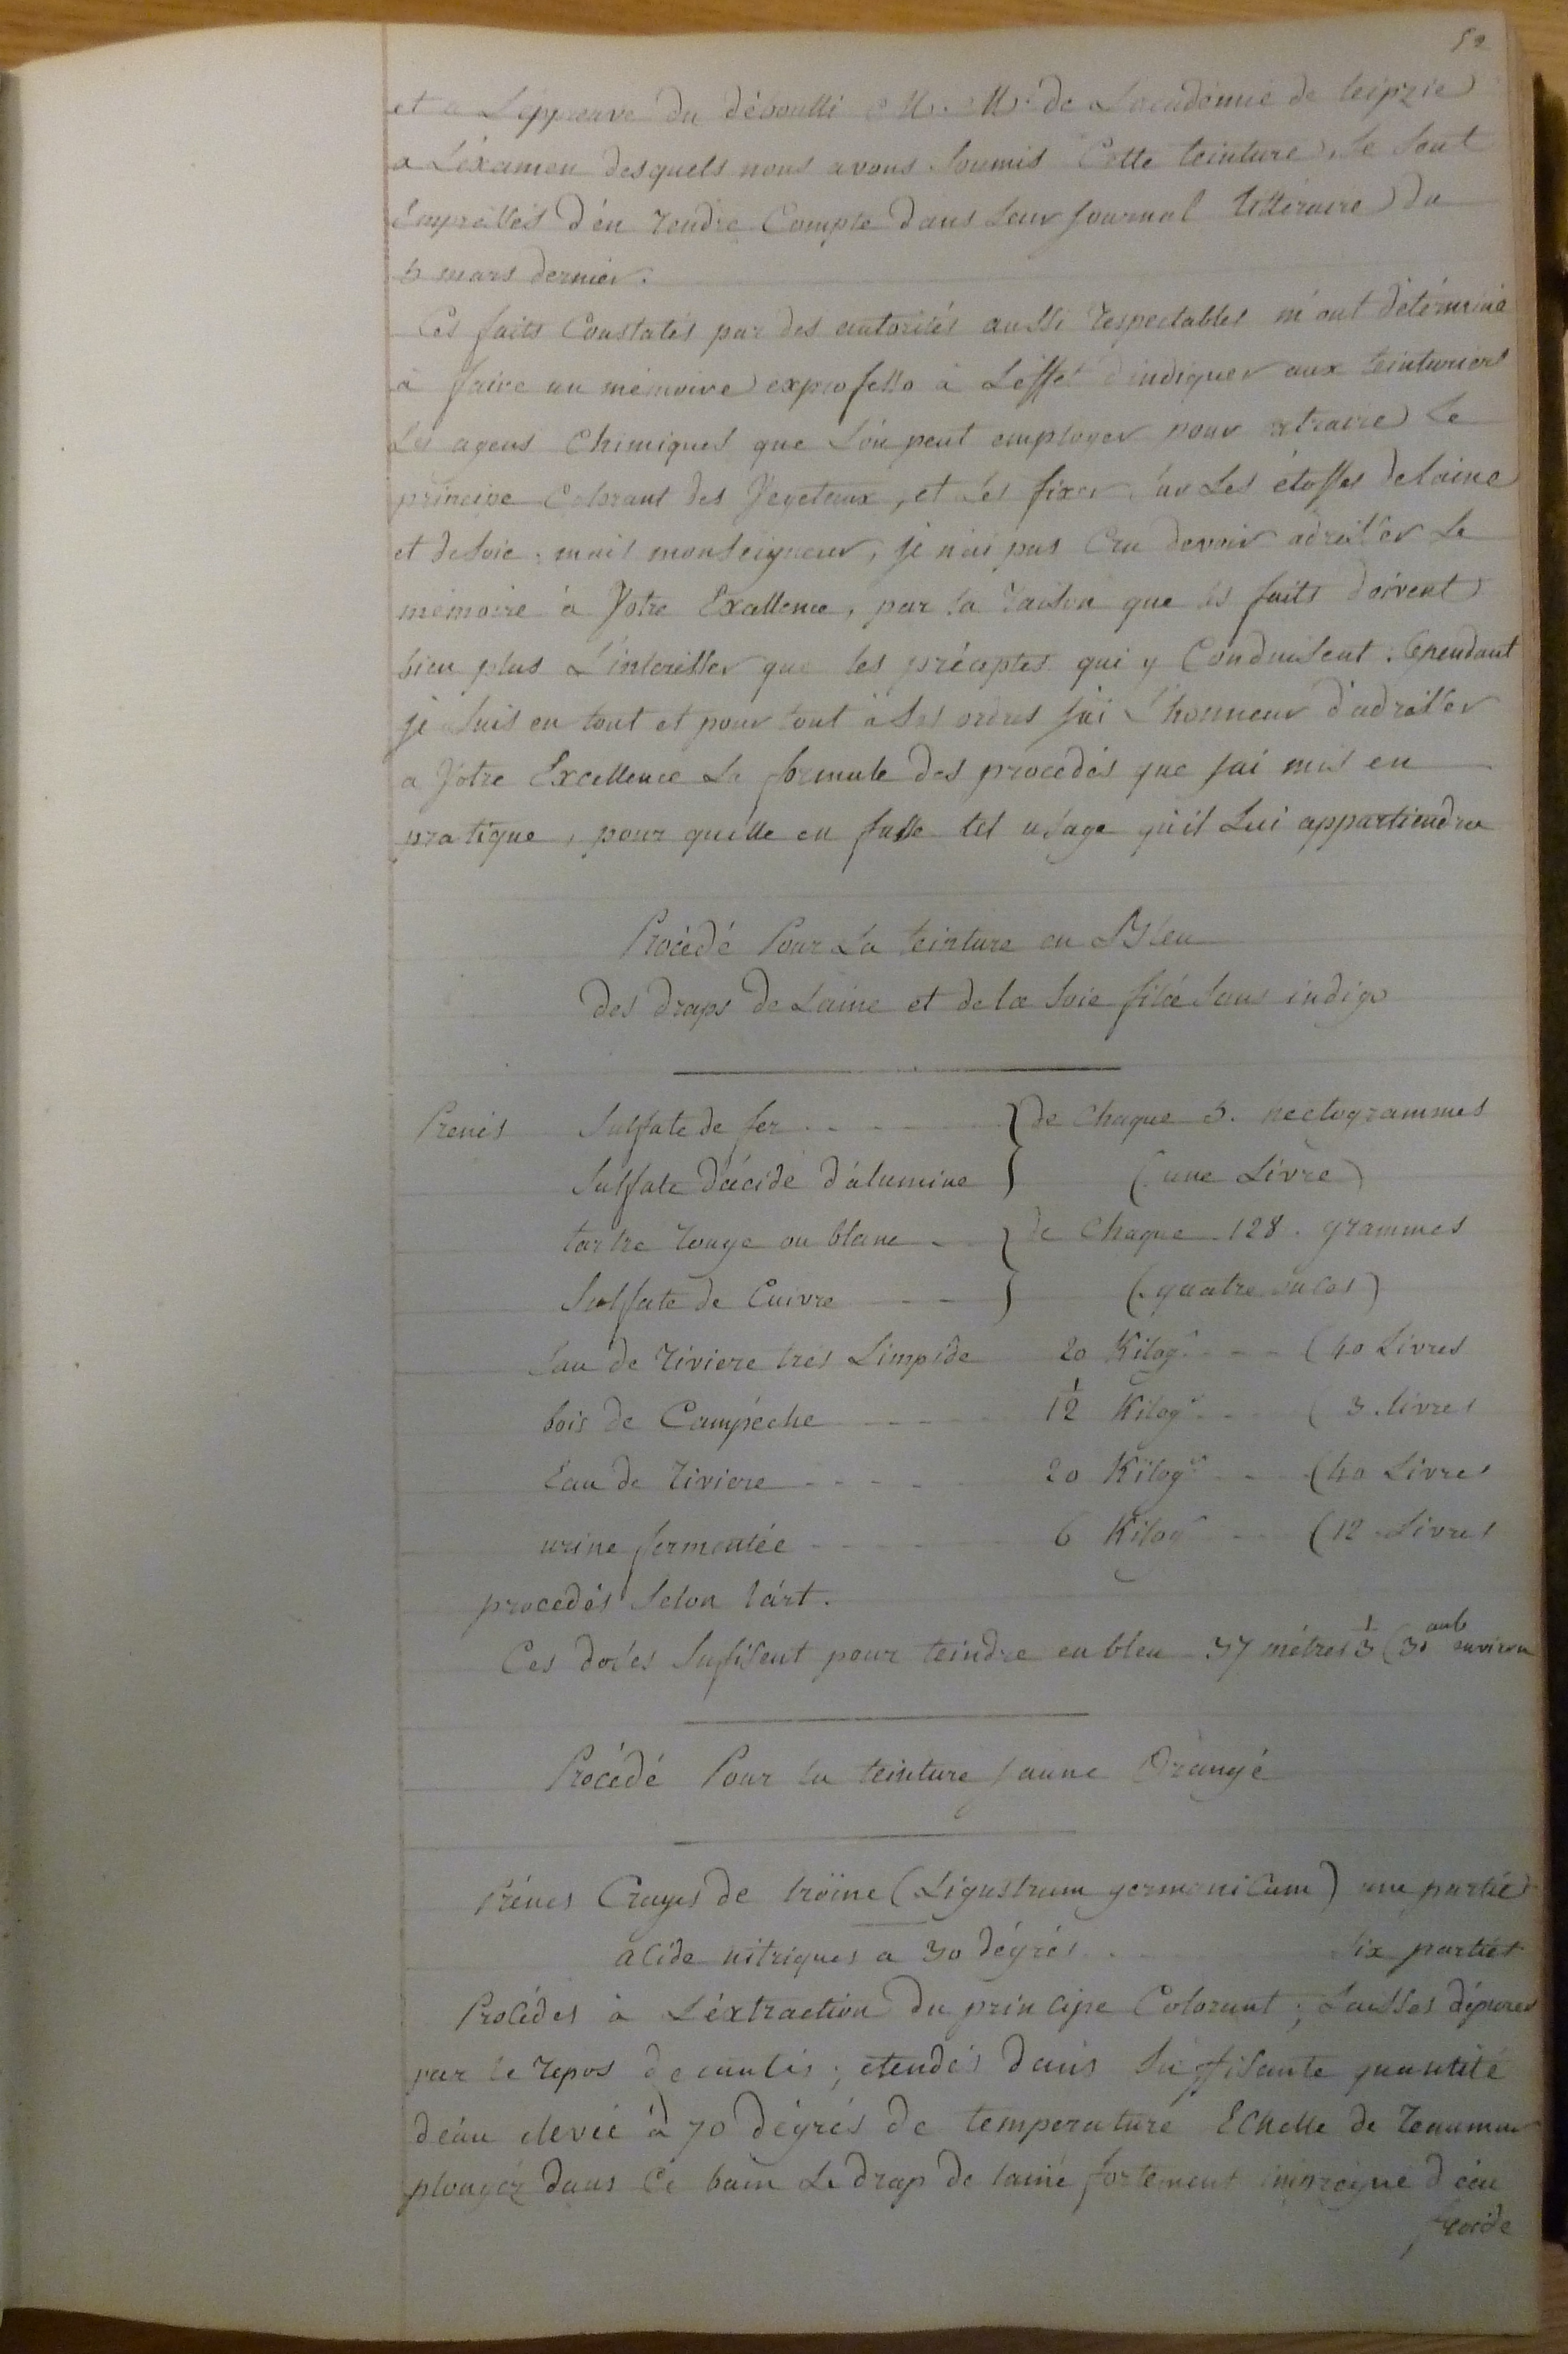 52
et a L'éppreuve du débouilli M. M. de L'académie de leipzic
a L'éxamen desquels nous avons Soumis Cette teinture, Se Sont
Empressés d'én rendre Compte dans Leur Journal littéraire du
5 mars dernier.
Ces faits Constatés par des autorités aussi respectables m'ont détérminé
à faire un mémoire exprofesso à L'éffet d'indiquer aux teinturiers
Les agens Chimiques que L'ón peut employer pour extraire Le
principe Colorant des Vegetaux, et Les fixer Sur Les étoffes de laine
et de Soie. mais monseigneur, je n'ai pas Cru devoir adresser Le
mémoire à Votre Exallence, par la raison que les faits doivent
bien plus L'intérésser que les préceptes qui y Conduisent. Cependant
je Suis en tout et pour tout à Ses ordres J'ai L'honneur d'adresser
a Votre Excellence La formule des procedés que J'ai mis en
pratique, pour qu'elle en fasse tel usage qu'il Lui appartiendra
Procédé Pour La teinture en Bleu
des draps de Laine et de la Soie filée Sans indigo
Prenés Sulfate de fer } de Chaque 5. hectogrammes
Sulfate d'ácide d'álumine } (une Livre)
tartre rouge ou blanc } de Chaque 128. grammes
Sulfate de Cuivre } (quatre onces)
Eau de riviere très Limpide 20 Kilog.s (40 Livres
bois de Campéche 1 1/2 Kilog.s (3 livres
Eau de riviere 20 Kilog.s (40 Livres
urine fermentée 6 Kilog.s (12 Livres
procedés Selon l'árt.
Ces doses Suffisent pour teindre en bleu 37 métres 1/3 (30 aub environ
Procédé Pour la teinture Jaune Orangé
Prénes Crayes de troïne (Ligustrum germanicum) une partie
acide nitriques a 30 dégrés six parties
Procédes à L'éxtraction du principe Colorant; Laisses déposer
par le repos decantés; etendés dans Suffisante quantité
d'eau elevée à 70 dégrés de temperature Echelle de reaumur
plongéz dans Ce bain Le drap de lainé fortement impregné d'eau
froide